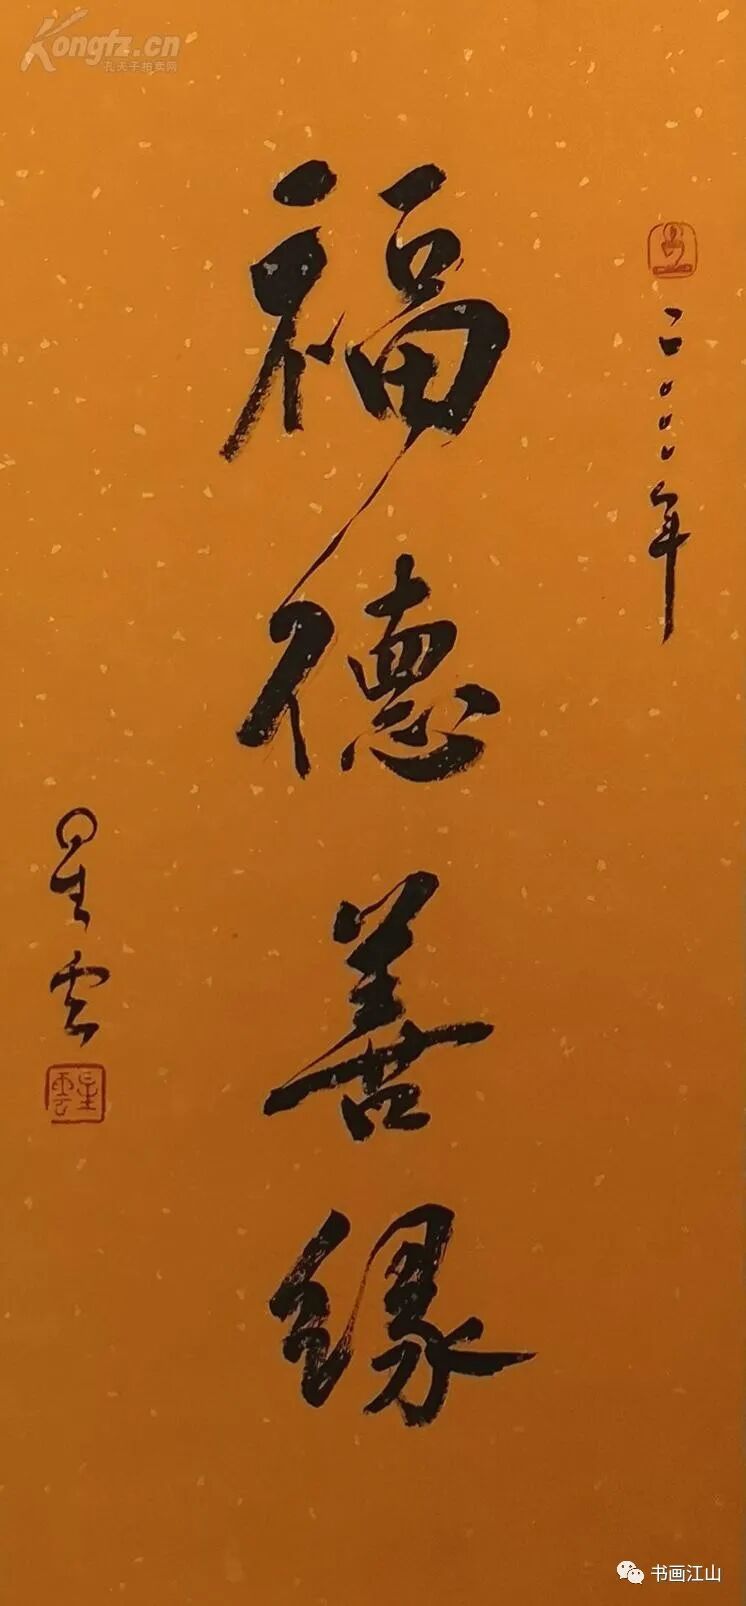 Kongfz.cn
孔夫子拍卖网
二〇〇〇年
福德善缘
星云
星雲
书画江山